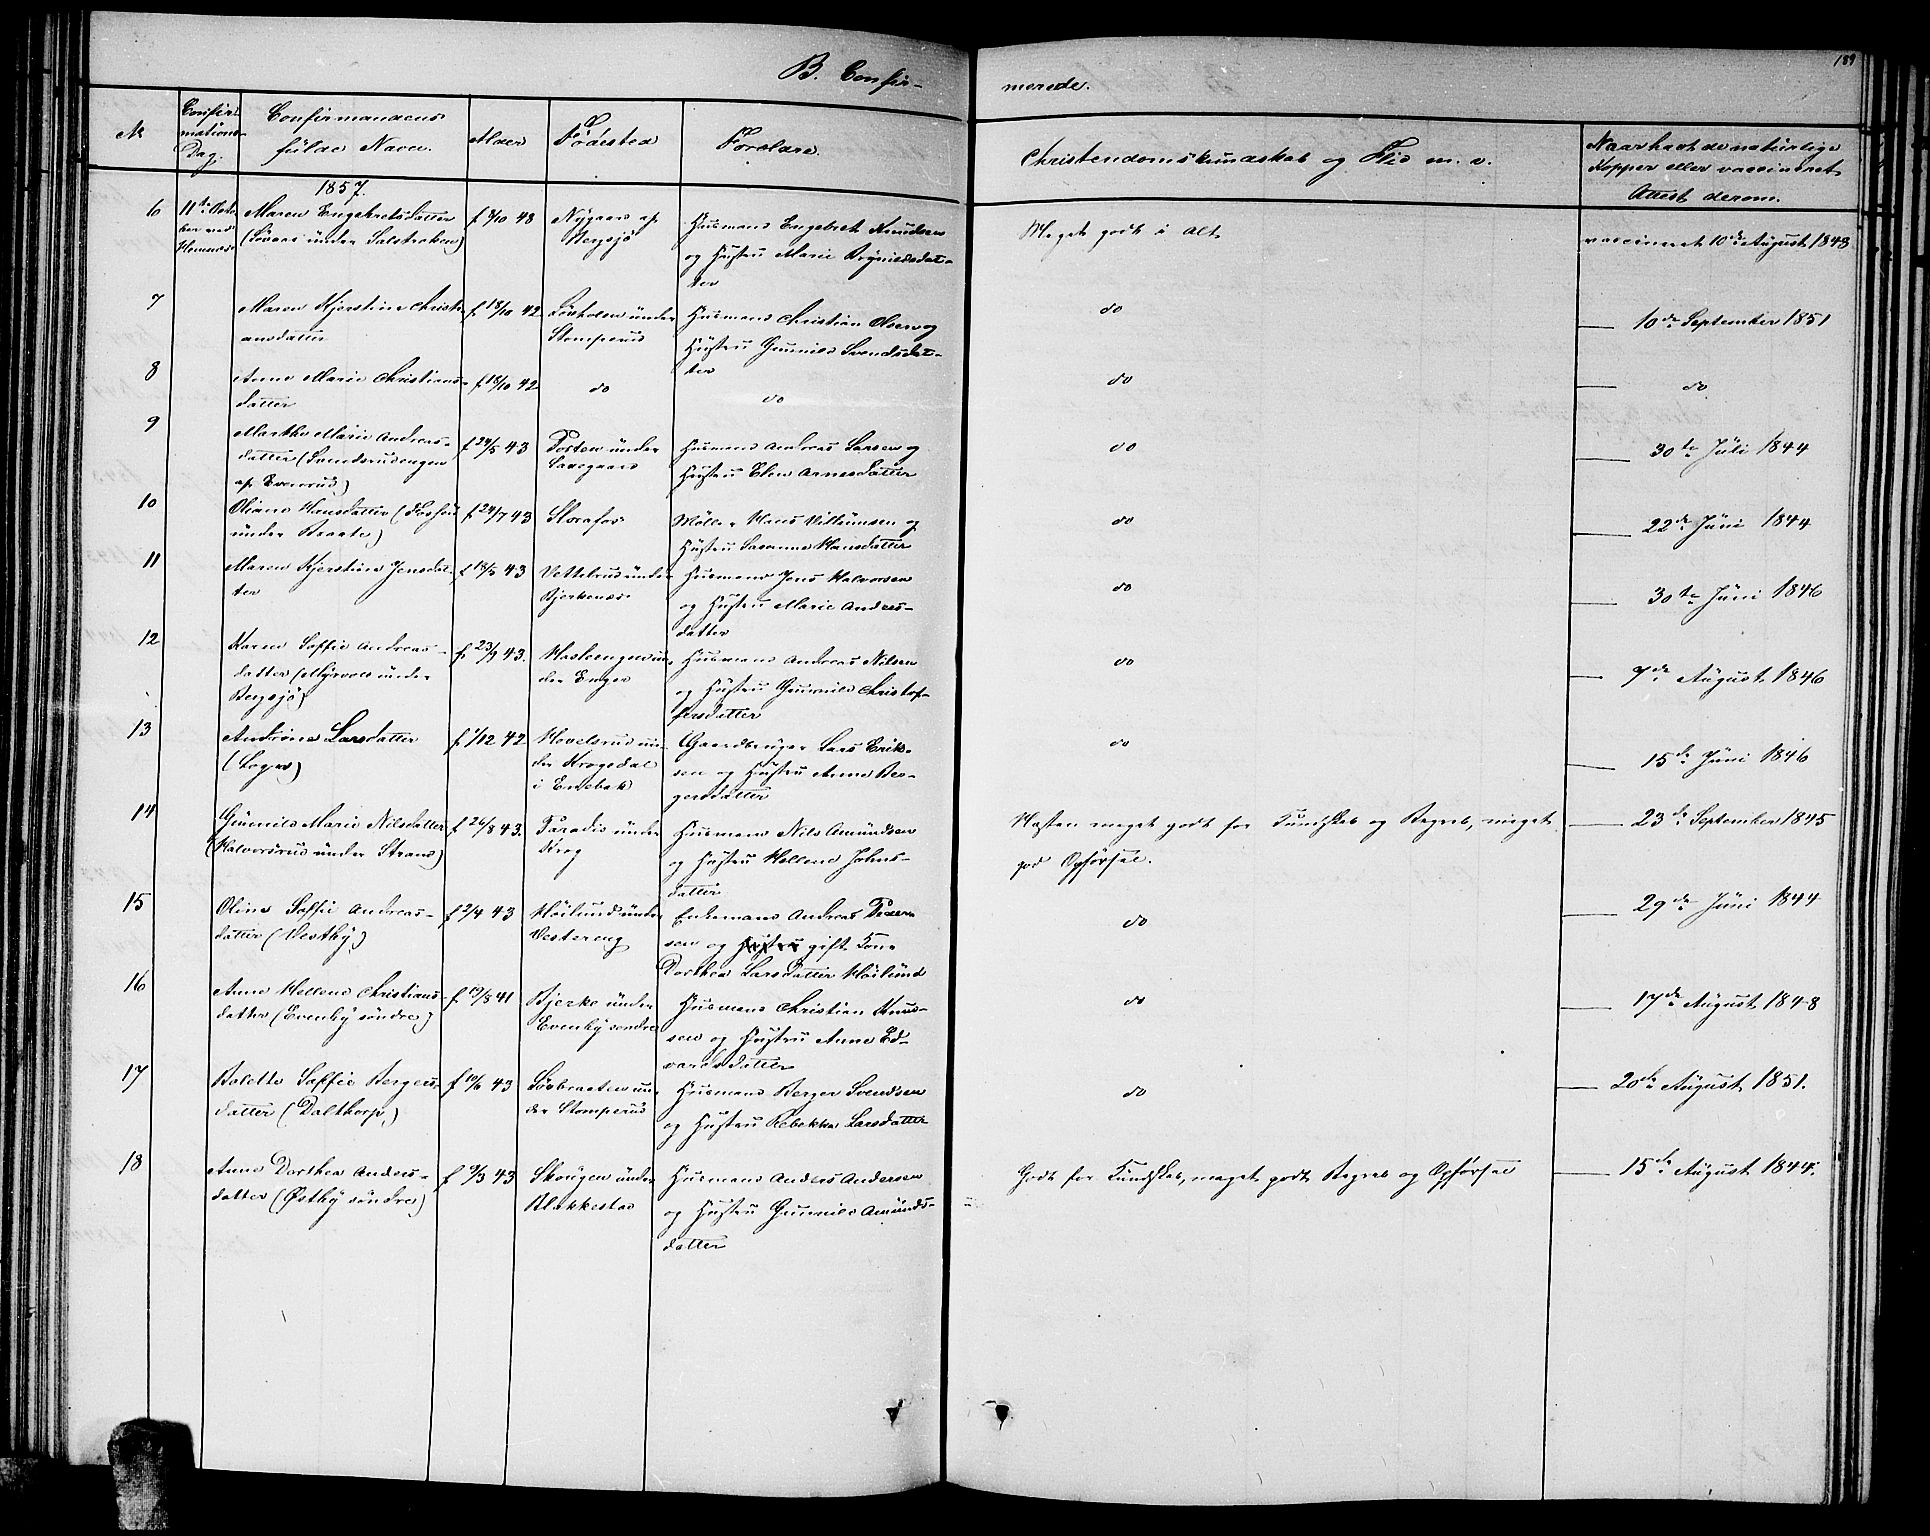 B. Confir-
merede.
189
№
Confir-
mations-
Dag.
Confirmandens
fulde Navn.
Alder
Fødested
Forældre.
Christendomskundskab og Flid m. v.
Naar havt de naturlige
Kopper eller vaccineret
Attest derom.
1857.
6
11te Octo
ber ved
Hemnæs
Maren Engebretsdatter
under
f 8/10 43
Nygaard af
Bergsjø
Husmand Engebret Knudsen
og Hustru Marie
ter
Meget godt i Alt
vaccineret 10de August 1843
7
Maren Kjerstine Christi
ansdatter
f 18/10 42
under
Stomperud
Husmand Christian Olsen og
Hustru Gunnild Svendsdat-
ter
do
10de September 1851
8
Anne Marie Christians-
datter
f 18/10 42
do
do
do
do
9
Marthe Marie Andreas-
datter (Svendsrudengen
af Evenrud)
f 24/5 43
Porten under
Husmand Andreas Larsen og
Hustru Elen Arnesdatter
do
30te Juli 1844
10
Oliane Hansdatter
under Braate)
f 24/7 43
Storefos
Møller Hans
Hustru Susanne Hansdatter
do
22de Juni 1844
11
Maren Kjerstine Jensdat
ter
f 18/5 43
under
Bjerkenæs
Husmand Jens Halvorsen
og Hustru Marie Anders-
datter
do
30te Juni 1846
12
Karen Soffie Andreas-
datter (Myrvold under
Bergsjø)
f 23/9 43.
Hasleengen un
der Enger
Husmand Andreas Nilsen
og Hustru Gunnild Christof-
fersdatter
do
7de August 1846
13
Andrine Larsdatter
f 1/12 42
Hovelsrud un-
der Krogsdal
i Enebak
Gaardbruger Lars Erik-
sen og Hustru Anne Ber-
gersdatter
do
15de Juni 1846
14
Gunnild Marie Nilsdatter
(Halvorsrud under Strand)
f 26/8 43.
Paradis under
Krog
Husmand Nils Amundsen
og Hustru Hellene Johns-
datter
Næsten meget godt for Kundskab og Begreb, meget
god Opførsel.
23de September 1845
15
Oline Soffie Andreas-
datter (Vestby)
f 2/4 43
Høilund under
Vestereng
Enkemand Andreas Peder-
sen og gift Kone
Dorthea Larsdatter Høilund
do
29de Juni 1844
16
Anne Hellene Christians-
datter (Evenby søndre)
f 19/8 41
Bjerke under
Evenby søndre
Husmand Christian Knud-
sen og Hustru Anne Ed-
vardsdatter
do
17de August 1848
17
Bolette Soffie Bergers-
datter (Dalthorp)
f 10/6 43
Søbraaten un-
der Stomperud
Husmand Berger Svendsen
og Hustru Rebekka Larsdatter
do
20de August 1851.
18
Anne Dorthea Anders-
datter (Østby søndre)
f 9/3 43
Skougen under
Blakkestad
Husmand Anders Andersen
og Hustru Gunnild Amunds-
datter
Godt for Kundskab, meget godt Begreb og Opførsel
15de August 1844.